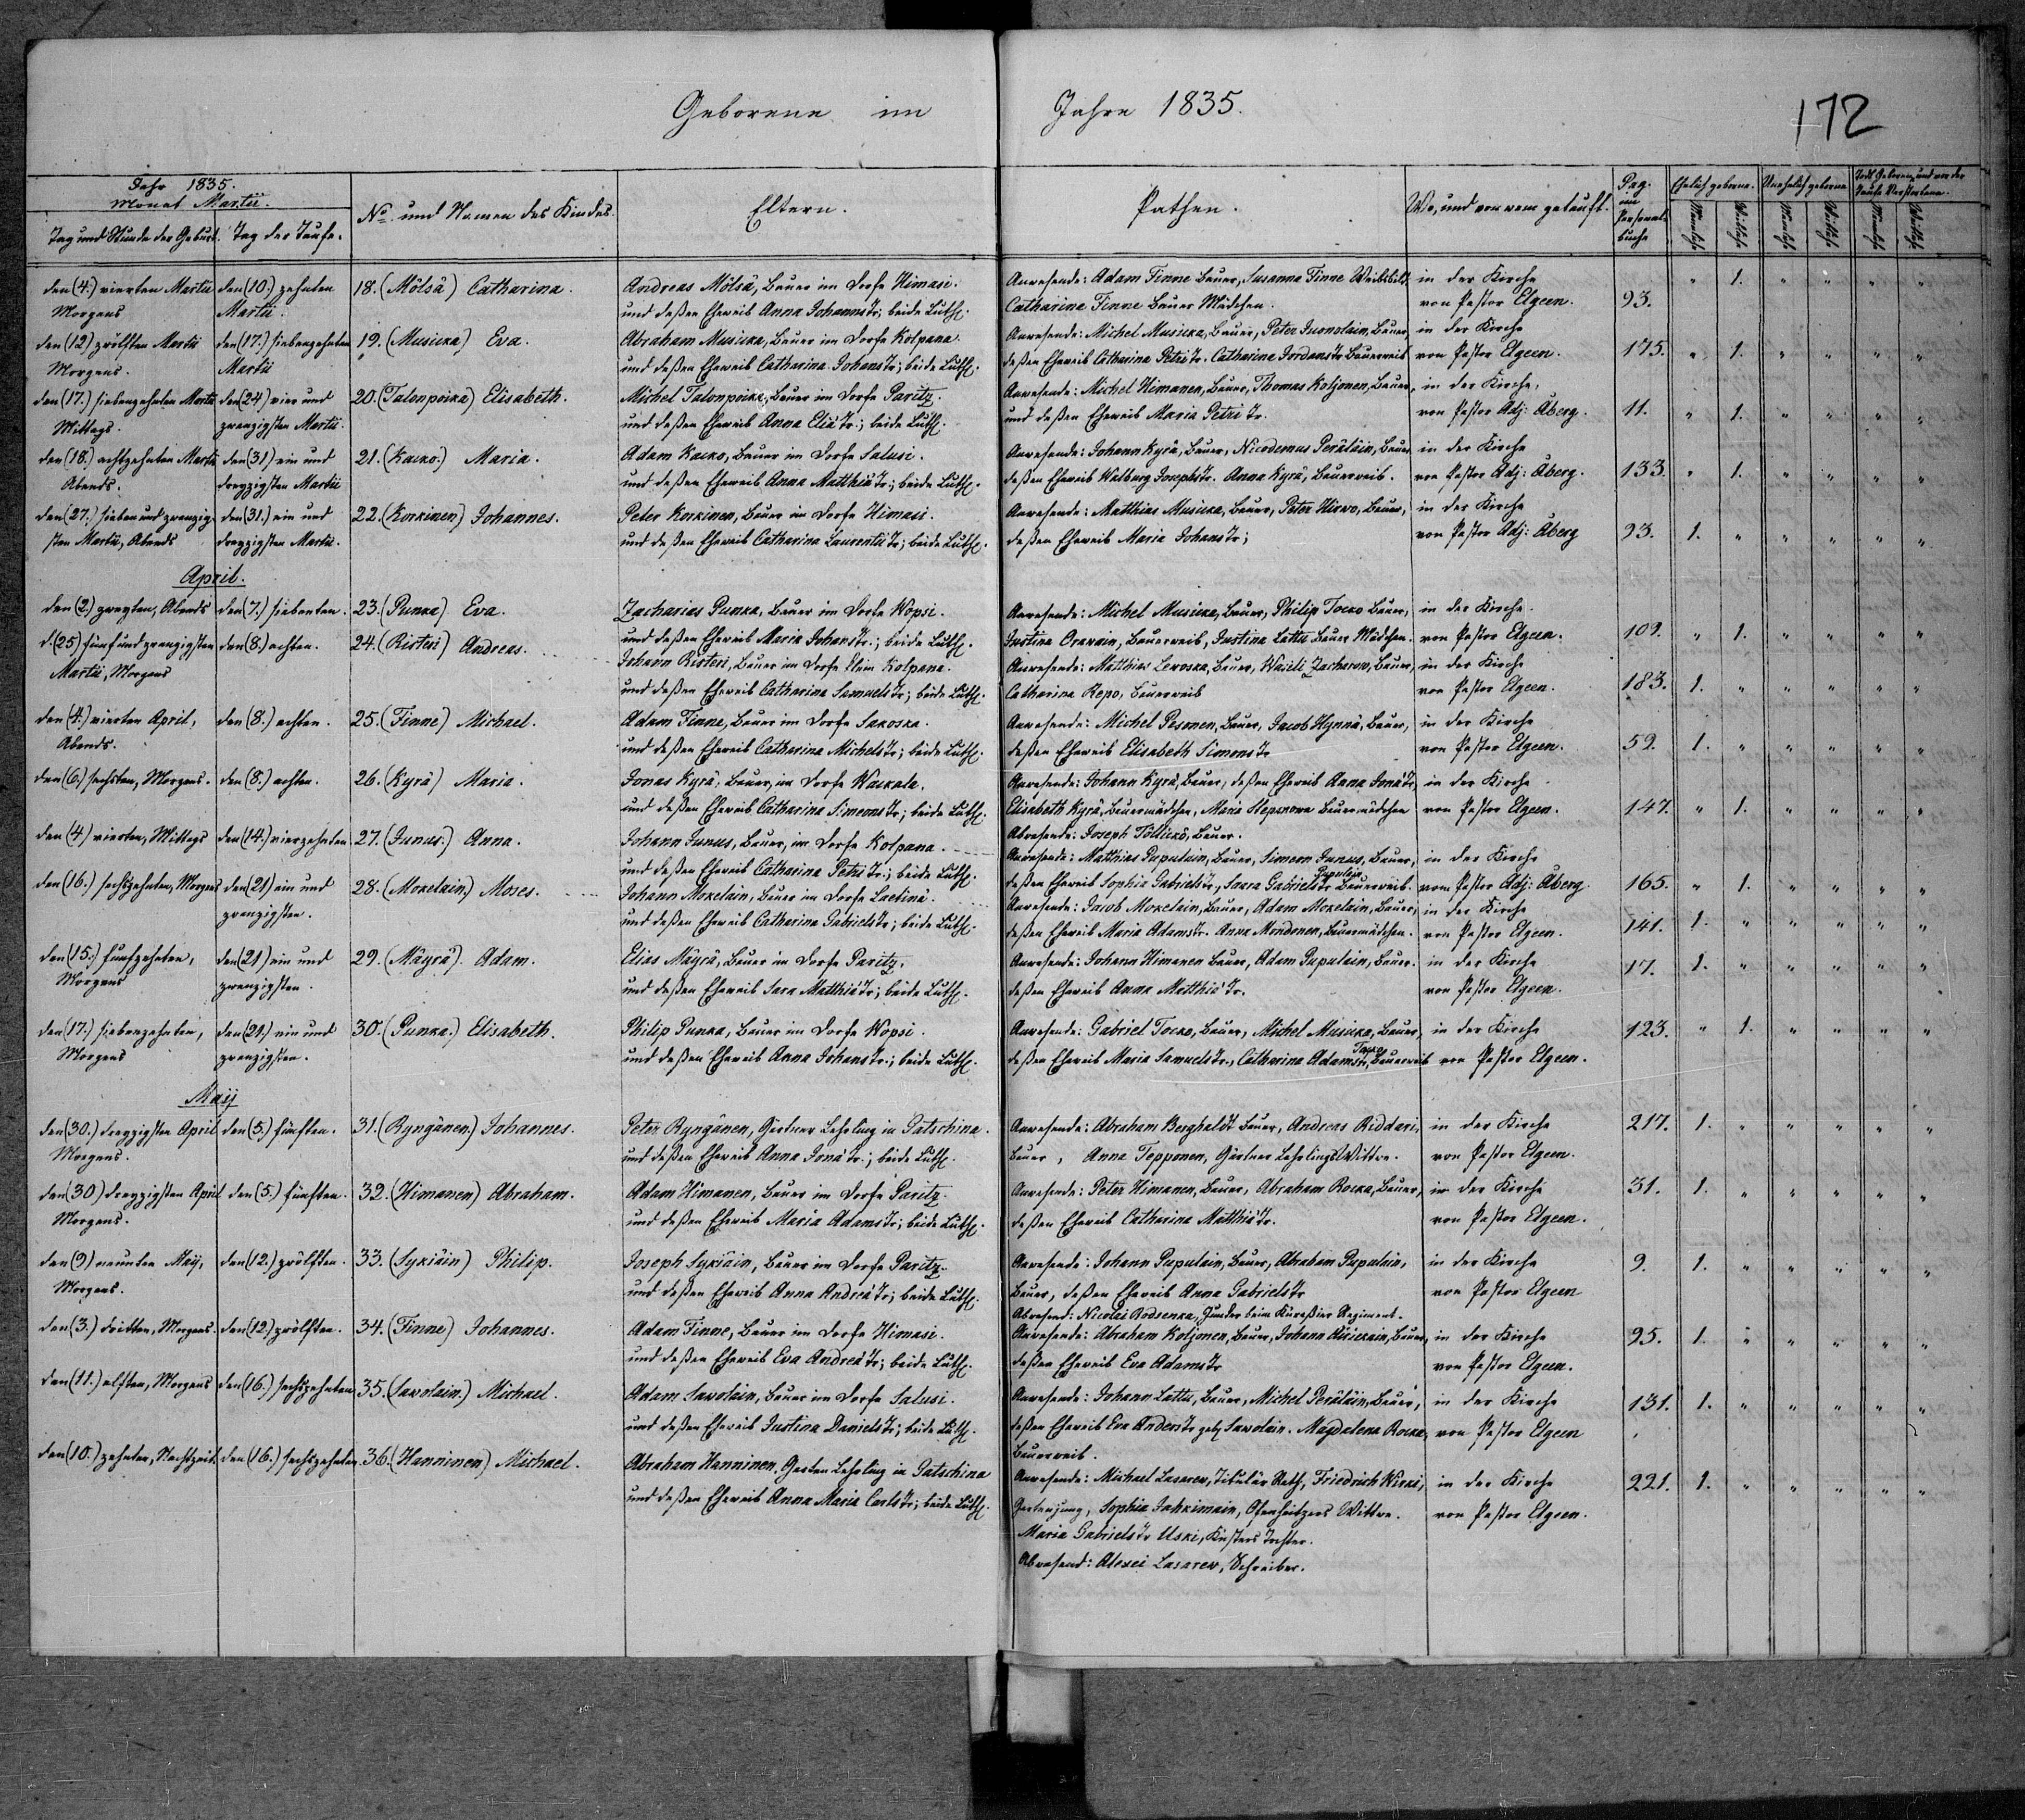 Geborene im Jahre 1835.
172
Jahr 1835.
Monat Martii.
Tag und Stunde der Geburt. Tag der Taufe.
No. und Namen des Kindes.
Eltern.
Pathen.
Wo, und von wem getauft.
Pag. im Personal-buche
Ehelich geborne. Unehelich geborne Todt Geborene und vor der Taufe Verstorbene.
Mannliche Weibliche Mannliche Weibliche Mannliche Weibliche
den (4.) vierten Martii den (10.) zehnten 18. (Mölsä) Catharina. Andreas Mölsä, Bauer im Dorfe Himasi. Anwesende: Adam Finne Bauer, Susanna Finne Weibsbild in der Kirche
Morgens Martii. und deßen Eheweib Anna Johannstr; beide Luth. Catharina Finne Bauer Mädchen. von Pastor Elgeen. 93. " 1. " " " "
den (12) zwölften Martii den (17.) siebenzehnten 19. (Musicka) Eva. Abraham Musicka, Bauer im Dorfe Kolpana. Anwesende: Michel Musicka, Bauer, Peter Bauer in der Kirche
Morgens. Martii und deßen Eheweib Catharina Johanstr; beide Luth. deßen Eheweib Catharina Petri tr. Catharina Jordanstr Bauerweib von Pastor Elgeen. 175. " 1. " " " "
den (17.) siebenzehnten Martii den (24) vier und 20. (Talonpoika) Elisabeth. Michel Talonpoika, Bauer im Dorfe Paritz. Anwesende: Michel Himanen, Bauer, Thomas Koljonen, Bauer, in der Kirche,
Mittags. zwanzigsten Martii. und deßen Eheweib Anna Eliä tr.; beide Luth. und deßen Eheweib Maria Petri tr. von Pastor Adj: Åberg. 11. " 1. " " " "
den (18.) achtzehnten Martii den (31) ein und 21. (Kacko.) Maria. Adam Kacko, Bauer im Dorfe Salusi. Anwesende: Johann Kyrä, Bauer, Nicodemus Perälain, Bauer in der Kirche
Abends. dreyzigsten Martii und deßen Eheweib Anna Matthiä tr; beide Luth. deßen Eheweib Walburg Josephstr. Anna Kyrä, Bauerweib. von Pastor Adj: Åberg. 133. " 1. " " " "
den (27.) sieben und zwanzig- den (31.) ein und 22. (Korkinen) Johannes. Peter Korkinen, Bauer im Dorfe Himasi. Anwesende: Matthias Musicka, Bauer, Peter Hirwo, Bauer, in der Kirche
sten Martii, Abends dreyzigsten Martii. und deßen Eheweib Catharina Laurentii tr; beide Luth. deßen Eheweib Maria Johanstr; von Pastor Adj: Åberg 93. 1. " " " " "
April.
den (2.) zweyten, Abends den (7.) siebenten. 23. (Punka) Eva. Zacharias Punka, Bauer im Dorfe Wopsi. Anwesende: Michel Musicka, Bauer, Philip Tocko Bauer, in der Kirche.
und deßen Eheweib Maria Johanstr.; beide Luth. Justina Orawain, Bauerweib, Justina Lattu Bauer Mädchen. von Pastor Elgeen. 109. " 1. " " " "
d. (25) fünf und zwanzigsten den (8.) achten. 24. (Risteri) Andreas. Johann Risteri, Bauer im Dorfe Klein Kolpana. Anwesende: Matthias Levoska, Bauer, Wasili Zacharow, Bauer, in der Kirche
Martii, Morgens und deßen Eheweib Catharina Samuelstr; beide Luth. Catharina Repo, Bauerweib von Pastor Elgeen. 183. 1. " " " " "
den (4.) vierten April, den (8.) achten. 25. (Finne) Michael. Adam Finne, Bauer im Dorfe Sakoska. Anwesende: Michel Pesonen, Bauer, Jacob Hynnä, Bauer, in der Kirche
Abends. und deßen Eheweib Catharina Michelstr; beide Luth. deßen Eheweib Elisabeth Simonstr von Pastor Elgeen. 59. 1. " " " " "
den (6.) sechsten, Morgens. den (8.) achten. 26. (Kyrä) Maria. Jonas Kyrä, Bauer, im Dorfe Wackala. Anwesende: Johann Kyrä, Bauer, deßen Eheweib Anna Jonätr in der Kirche
und deßen Eheweib Catharina Simeonstr; beide Luth. Elisabeth Kyrä, Bauermädchen, Maria Stepanowa Bauermädchen von Pastor Elgeen. 147. " 1. " " " "
Abwesende: Joseph Töllickö, Bauer.
den (4) vierten, Mittags den (14.) vierzehnten 27. (Junus.) Anna. Johann Junus, Bauer, im Dorfe Kolpana. Anwesende: Matthias Pupulain, Bauer, Simeon Junus, Bauer, in der Kirche
und deßen Eheweib Catharina Petri tr.; beide Luth. deßen Eheweib Sophia Gabrielstr., Saara Gabrielstr Pupulain Bauerweib. vom Pastor Adj: Åberg. 165. " 1. " " " "
den (16.) sechszehnten, Morgens den (21) ein und 28. (Mokelain.) Moses. Johann Mokelain, Bauer im Dorfe Laelinä. Anwesende: Jacob Mokelain, Bauer, Adam Mokelain, Bauer, in der Kirche
zwanzigsten. und deßen Eheweib Catharina Gabrielstr; beide Luth. deßen Eheweib Maria Adamstr. Anna Mondonen, Bauermädchen. von Pastor Elgeen. 141. 1. " " " " "
den (15.) fünfzehnten, den (21) ein und 29. (Mäyrä). Adam. Elias Mäyrä, Bauer im Dorfe Paritz. Anwesende: Johann Himanen Bauer, Adam Pupulain, Bauer. in der Kirche 17. 1. " " " " "
Morgens zwanzigsten. und deßen Eheweib Sara Matthiä tr; beide Luth. deßen Eheweib Anna Matthiä tr. von Pastor Elgeen.
den (17.) siebenzehnten, den (21.) ein und 30. (Punka.) Elisabeth. Philip Punka, Bauer im Dorfe Wopsi. Anwesende: Gabriel Tocko, Bauer, Michel Musicka, Bauer, in der Kirche 123. " 1. " " " "
Morgens zwanzigsten. und deßen Eheweib Anna Johanstr.; beide Luth. deßen Eheweib Maria Samuelstr., Catharina Adamstr, Bauerweib von Pastor Elgeen.
Maij
den (30.) dreyzigsten April den (5.) fünften. 31. (Ryngänen.) Johannes. Peter Ryngänen, Gärtner Lehrling in Gatschina. Anwesende: Abraham Berghäldt Bauer, Andreas Riddari, in der Kirche 217. 1. " " " " "
Morgens. und deßen Eheweib Anna Jonä tr.; beide Luth. Bauer, Anna Tepponen, Gärtner Lehrlings Wittwe. von Pastor Elgeen.
den (30) dreyzigsten April den (5.) fünften. 32. (Himanen) Abraham. Adam Himanen, Bauer im Dorfe Paritz. Anwesende: Peter Himanen, Bauer, Abraham Rocka, Bauer, in der Kirche 31. 1. " " " " "
Morgens. und deßen Eheweib Maria Adamstr; beide Luth. deßen Eheweib Catharina Matthiä tr. von Pastor Elgeen.
den (9) neunten Maij, den (12.) zwölften. 33. (Sykiäin) Philip. Joseph Sykiäin, Bauer im Dorfe Paritz. Anwesende: Johann Pupulain, Bauer, Abraham Pupulain, in der Kirche 9. 1. " " " " "
Morgens. und deßen Eheweib Anna Andreä tr; beide Luth. Bauer, deßen Eheweib Anna Gabrielstr von Pastor Elgeen
Abwesend: Nicolai Rodsenka, Junker beim Kürassier Regiment.
den (3.) dritten, Morgens. den (12.) zwölften. 34. (Finne) Johannes. Adam Finne, Bauer im Dorfe Himasi. Anwesende: Abraham Koljonen, Bauer, Johann Bauer, in der Kirche 95. 1. " " " " "
und deßen Eheweib Eva Andreä tr; beide Luth. deßen Eheweib Eva Adamstr von Pastor Elgeen.
den (11.) elften, Morgens den (16.) sechszehnten 35. (Savolain.) Michael. Adam Savolain, Bauer im Dorfe Salusi. Anwesende: Johann Lattu, Bauer, Michel Perälain, Bauer, in der Kirche 131. 1. " " " " "
und deßen Eheweib Justina Danielstr; beide Luth. deßen Eheweib Eva Anderstr geb. Savolain. Magdalena Rocka, von Pastor Elgeen
Bauerweib.
den (10.) zehnten, Nachtzeit. den (16.) sechszehnten. 36. (Hanninen) Michael. Abraham Hanninen, Garten Lehrling in Gatschina Anwesende: Michael Lasarew, Titulär Rath, Friedrich Kirki, in der Kirche 221. 1. " " " " "
und deßen Eheweib Anna Maria Carlstr; beide Luth. Gartenjung, Sophia Jahkimain, Ofenheitzers Wittwe. von Pastor Elgeen.
Maria Gabrielstr Uski, Küsters Tochter.
Abwesend: Alexei Lasarew, Schreiber.